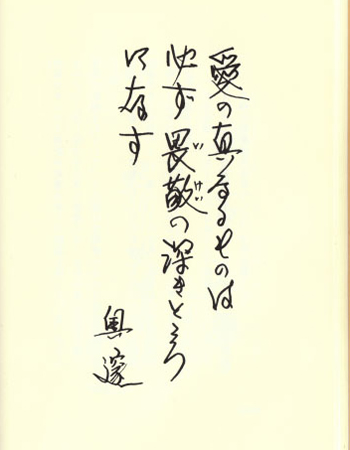 愛の真なるものは
いけい
必ず畏敬の深きところ
に存す
奥邃